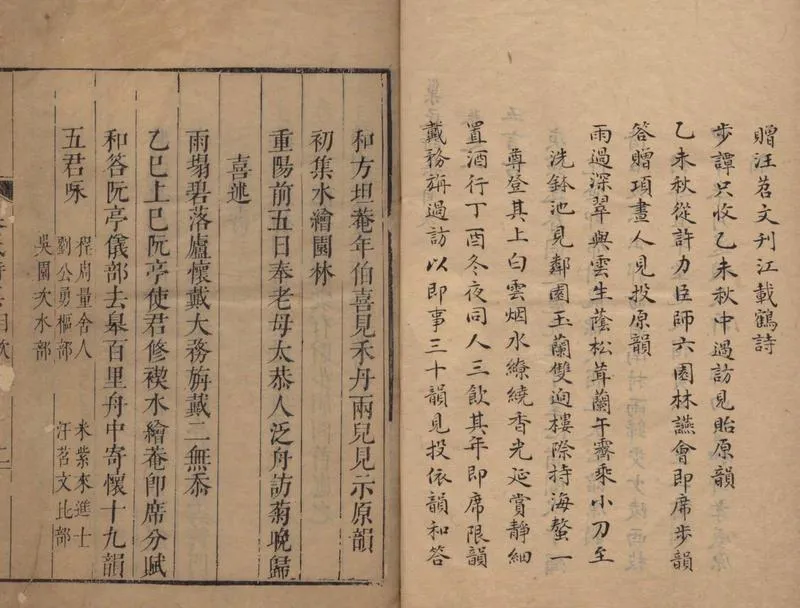 贈汪苕文刊江載鶴詩
步譚只收乙未秋中過訪見貽原韻
乙未秋從許力臣師六園林讌會即席步韻
答贈項畫人見投原韻
雨過深翠與雲生蔭松茸蘭午霽乘小刀至
洗鉢池見鄰園玉蘭雙迥樓際持海螯一
尊登其上白雲烟水繚繞香光延賞靜細
置酒行丁酉冬夜同人三飲其年即席限韻
戴務旃過訪以即事三十韻見投依韻和答
和方坦菴年伯喜見禾丹兩兒見示原韻
初集水繪園林
重陽前五日奉老母太恭人泛舟訪菊晚歸
喜述
雨塌碧落廬懷戴大務旃戴二無忝
乙巳上巳阮亭使君修禊水繪菴卽席分賦
和答阮亭儀部去皋百里舟中寄懷十九韻
五君咏
程周量舍人
劉公勇樞部
吳園次水部
米紫來進士
汪苕文比部